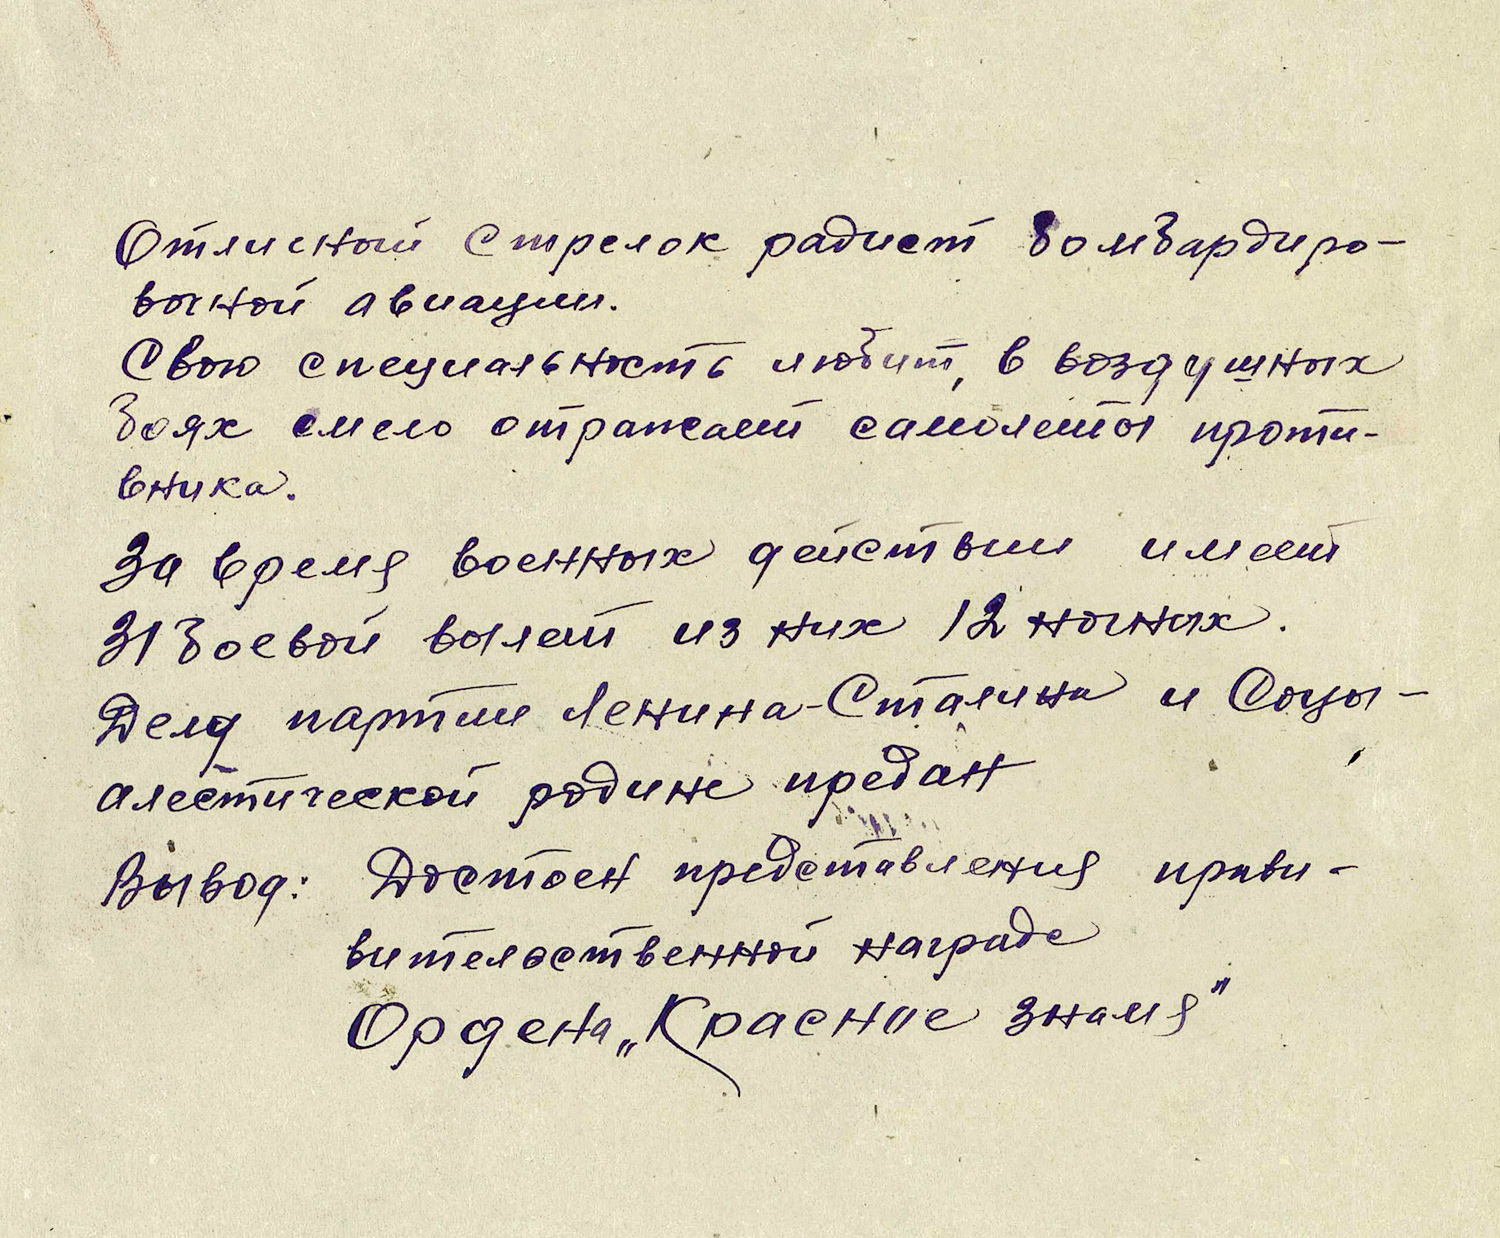 Отличный стрелок радист бомбардиро-
вочной авиации.
Свою специальность любит, в воздушных
боях смело отражает самолеты проти-
вника.
За время военных действии имеет
31 боевой вылет из них 12 ночных.
Делу партии Ленина-Сталина и Соцы-
алестической родине предан
Вывод: Достоен представления прави-
вительственной награде
Ордена „Красное знамя"